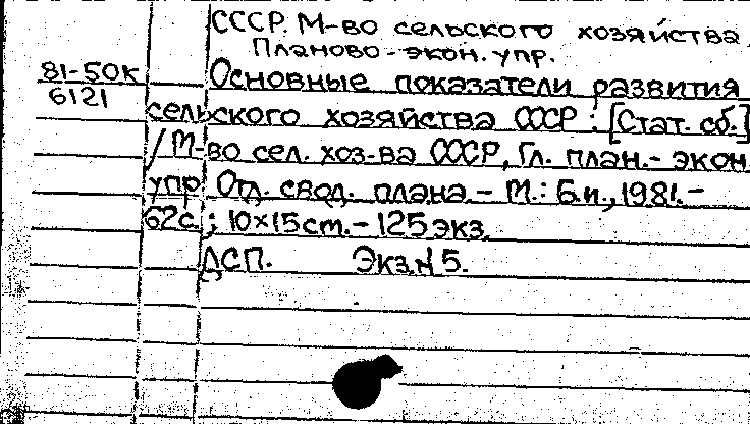 СССР. М-во сельского хозяйства.
Планово-экон. упр.
81-50к
6121
Основные показатели развития
сельского хозяйства СССР: [Стат. сб.]
/ М-во сел. хоз-ва СССР, Гл. план.-экон
упр. Отд. свод. плана.- М.: Б.и., 1981.-
62с.; 10×15см.- 125экз.
ДСП. Экз.№5.